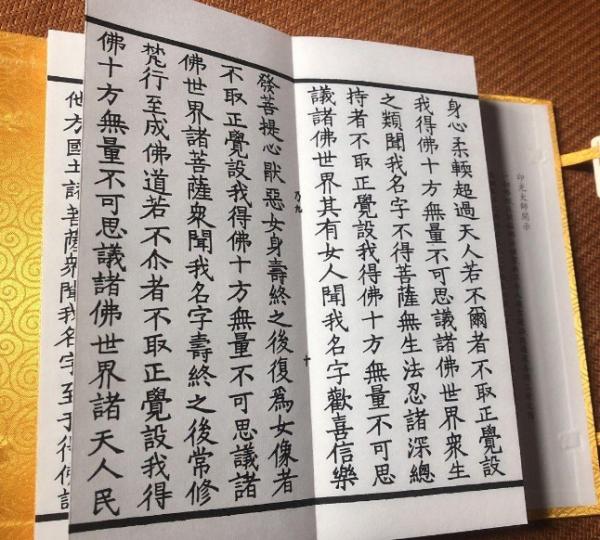 印光大師開示
身心柔輭超過天人若不爾者不取正覺設
我得佛十方無量不可思議諸佛世界衆生
之類聞我名字不得菩薩無生法忍諸深總
持者不取正覺設我得佛十方無量不可思
議諸佛世界其有女人聞我名字歡喜信樂
十
發菩提心猒惡女身壽終之後復爲女像者
不取正覺設我得佛十方無量不可思議諸
佛世界諸菩薩衆聞我名字壽終之後常修
梵行至成佛道若不尒者不取正覺設我得
佛十方無量不可思議諸佛世界諸天人民
他方國土諸菩薩衆聞我名字至于得佛